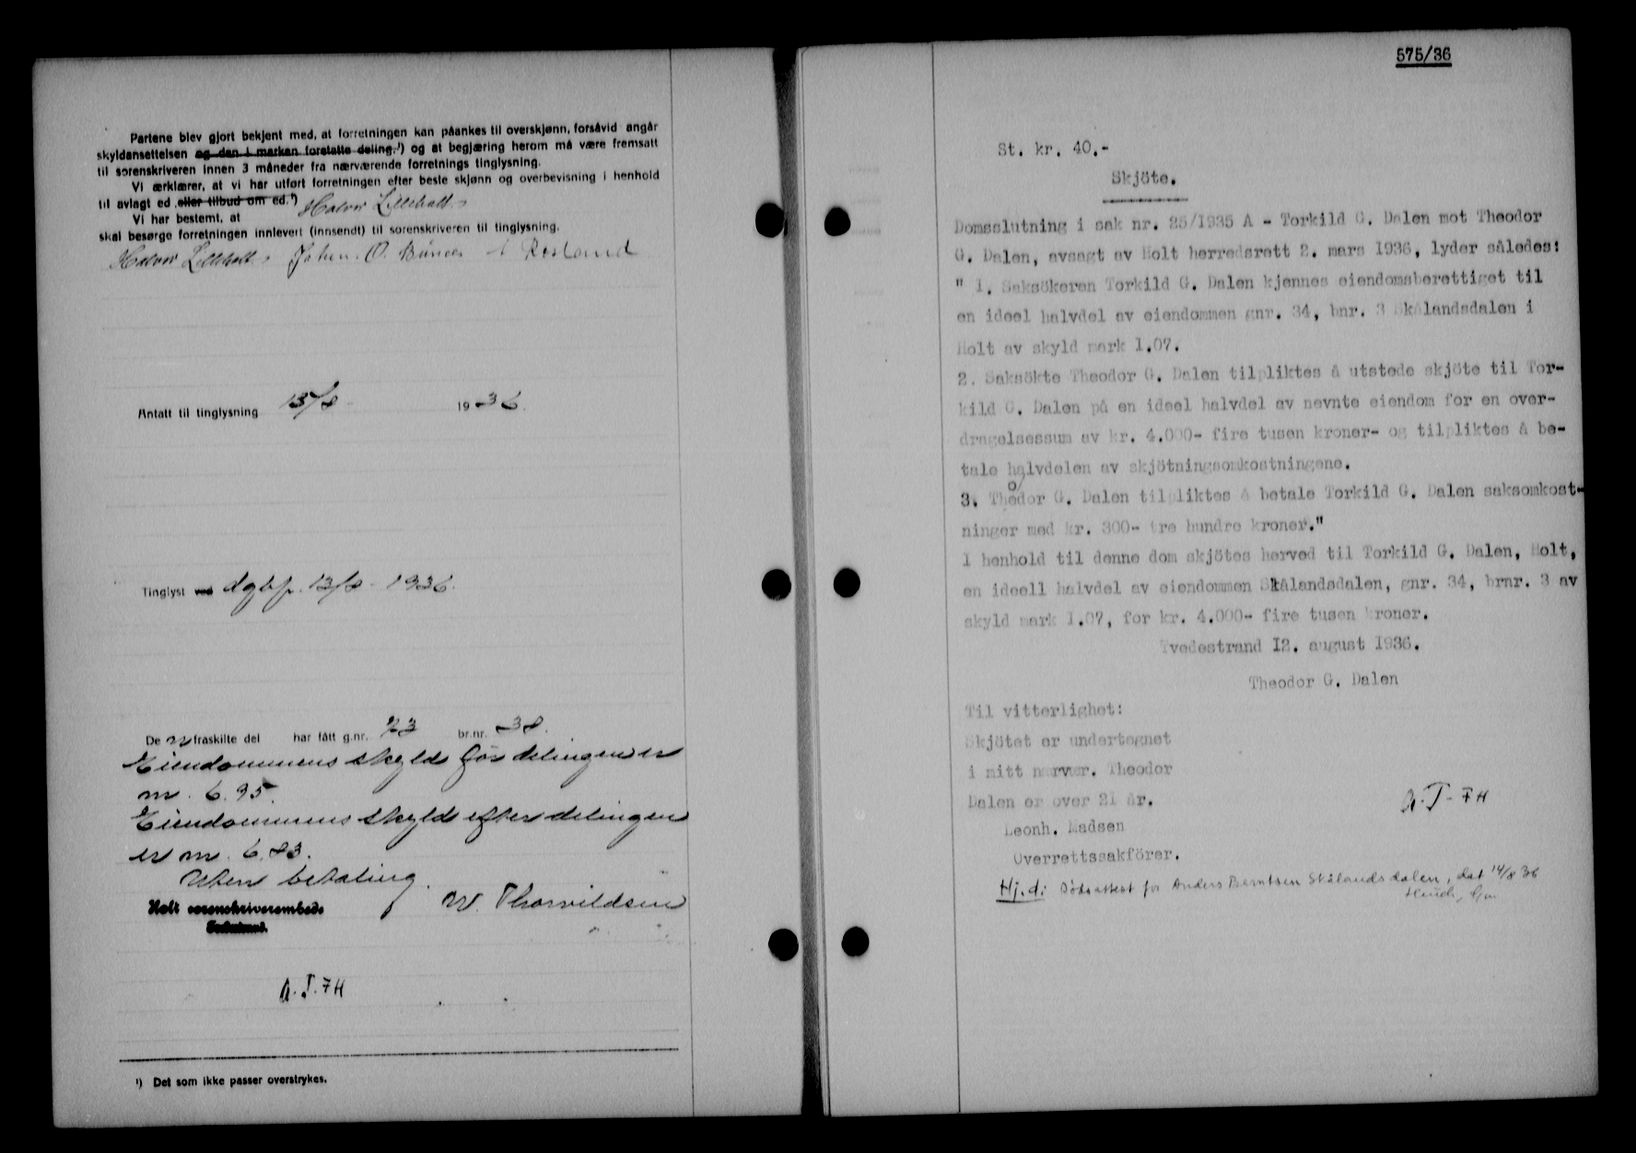 Partene blev gjort bekjent med, at forretningen kan påankes til overskjønn, forsåvid angår
skyldansettelsen og den i marken foretatte deling.¹) og at begjæring herom må være fremsatt
til sorenskriveren innen 3 måneder fra nærværende forretnings tinglysning.
Vi ærklærer, at vi har utført forretningen efter beste skjønn og overbevisning i henhold
til avlagt ed eller tilbud om ed.¹)
Vi har bestemt, at Halvor Lilleholt
skal besørge forretningen innlevert (innsendt) til sorenskriveren til tinglysning.
Halvor Lilleholt Johan. O. Rosland
Antatt til tinglysning 13/8 1936.
Tinglyst ved dgbf. 13/8 - 1936.
De n fraskilte del har fått g.nr. 23 br.nr. 38.
Eiendommens skyld før delingen er
m. 6.95.
Eiendommens skyld efter delingen
er m. 6.83.
Uten betaling.
Holt sorenskriverembede
W. Thorvildsen
A.T. 7H
¹) Det som ikke passer overstrykes.
575/36
St. kr. 40.-
Skjöte.
Domsslutning i sak nr. 25/1935 A - Torkild G. Dalen mot Theodor
G. Dalen, avsagt av Holt herredsrett 2. mars 1936, lyder således:
" 1. Saksökeren Torkild G. Dalen kjennes eiendomsberettiget til
en ideel halvdel av eiendommen gnr. 34, bnr. 3 Skålandsdalen i
Holt av skyld mark 1.07.
2. Saksökte Theodor G. Dalen tilpliktes å utstede skjöte til Tor-
kild G. Dalen på en ideel halvdel av nevnte eiendom for en over-
dragelsessum av kr. 4.000- fire tusen kroner- og tilpliktes å be-
tale halvdelen av skjötningsomkostningene.
3. Theodor G. Dalen tilpliktes å betale Torkild G. Dalen saksomkost-
ninger med kr. 300- tre hundre kroner."
I henhold til denne dom skjötes herved til Torkild G. Dalen, Holt,
en ideell halvdel av eiendommen Skålandsdalen, gnr. 34, brnr. 3 av
skyld mark 1.07, for kr. 4.000- fire tusen kroner.
Tvedestrand 12. august 1936.
Theodor G. Dalen
Til vitterlighet:
Skjötet er undertegnet
i mitt nærvær. Theodor
Dalen er over 21 år.
Leonh. Madsen
Overrettssakförer.
A.T. 7H
Hj.d: Dödsattest for Anders Berntsen Skålandsdalen, dat 14/8 36